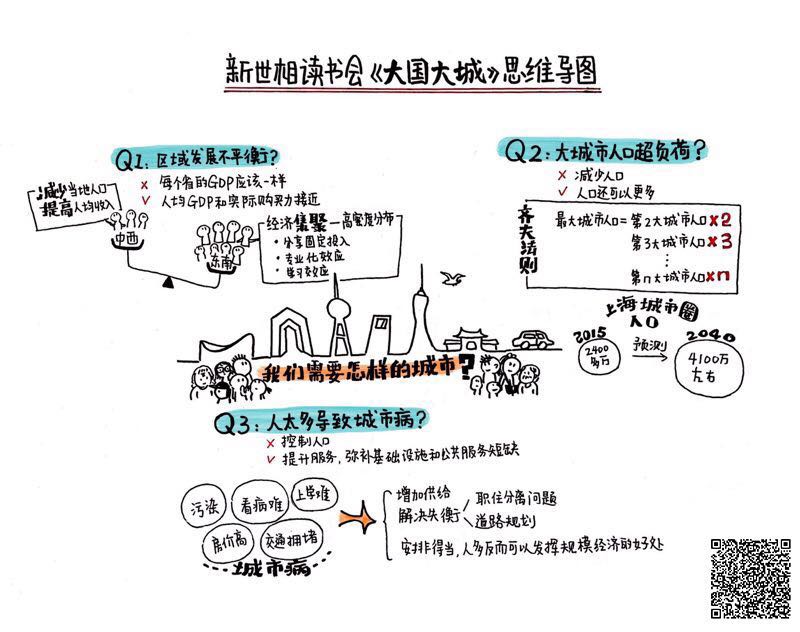 新世相读书会《大国大城》思维导图
Q1:区域发展不平衡?
× 每个省的GDP应该一样
✓ 人均GDP和实际购买力接近
减少当地人口
提高人均收入
中西
东南
经济集聚—高密度分布
• 分享固定投入
• 专业化效应
• 学习效应
Q2:大城市人口超负荷?
× 减少人口
✓ 人口还可以更多
齐夫法则
最大城市人口=第2大城市人口×2
第3大城市人口×3
⋮
第n大城市人口×n
上海城市圈
人口
2015
2400
多万
预测
2040
4100万
左右
我们需要怎样的城市?
Q3:人太多导致城市病?
× 控制人口
✓ 提升服务,弥补基础设施和公共服务短缺
污染
看病难
上学难
房价高
交通拥堵
城市病
增加供给
解决失衡
职住分离问题
道路规划
安排得当,人多反而可以发挥规模经济的好处